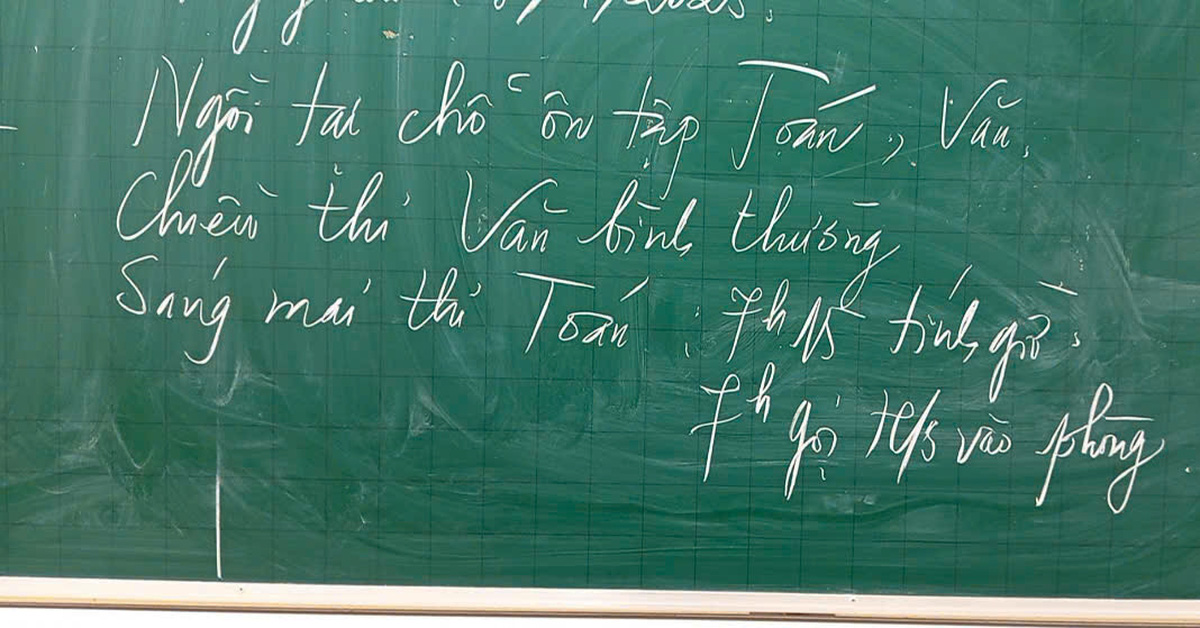 Ngồi tại chỗ ôn tập Toán, Văn.
Chiều thi Văn bình thường
Sáng mai thi Toán: 7h15 tính giờ.
7h gọi H/s vào phòng.